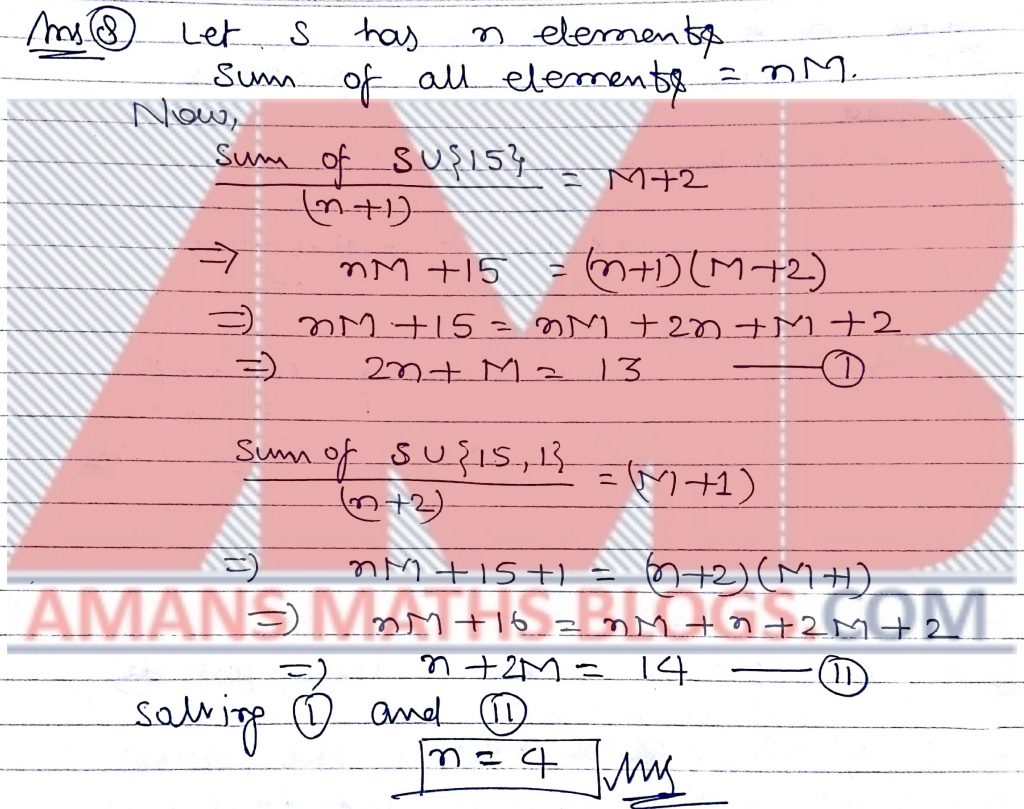 Ans 8 Let S has n elements
Sum of all elements = nM.
Now,
Sum of S∪{15} / (n+1) = M+2
⇒ nM + 15 = (n+1)(M+2)
⇒ nM + 15 = nM + 2n + M + 2
⇒ 2n + M = 13 —— I
Sum of S∪{15, 1} / (n+2) = (M+1)
⇒ nM + 15 + 1 = (n+2)(M+1)
AMANS MATHS BLOGS.COM
⇒ nM + 16 = nM + n + 2M + 2
⇒ n + 2M = 14 —— II
Solving I and II
n = 4 Ans